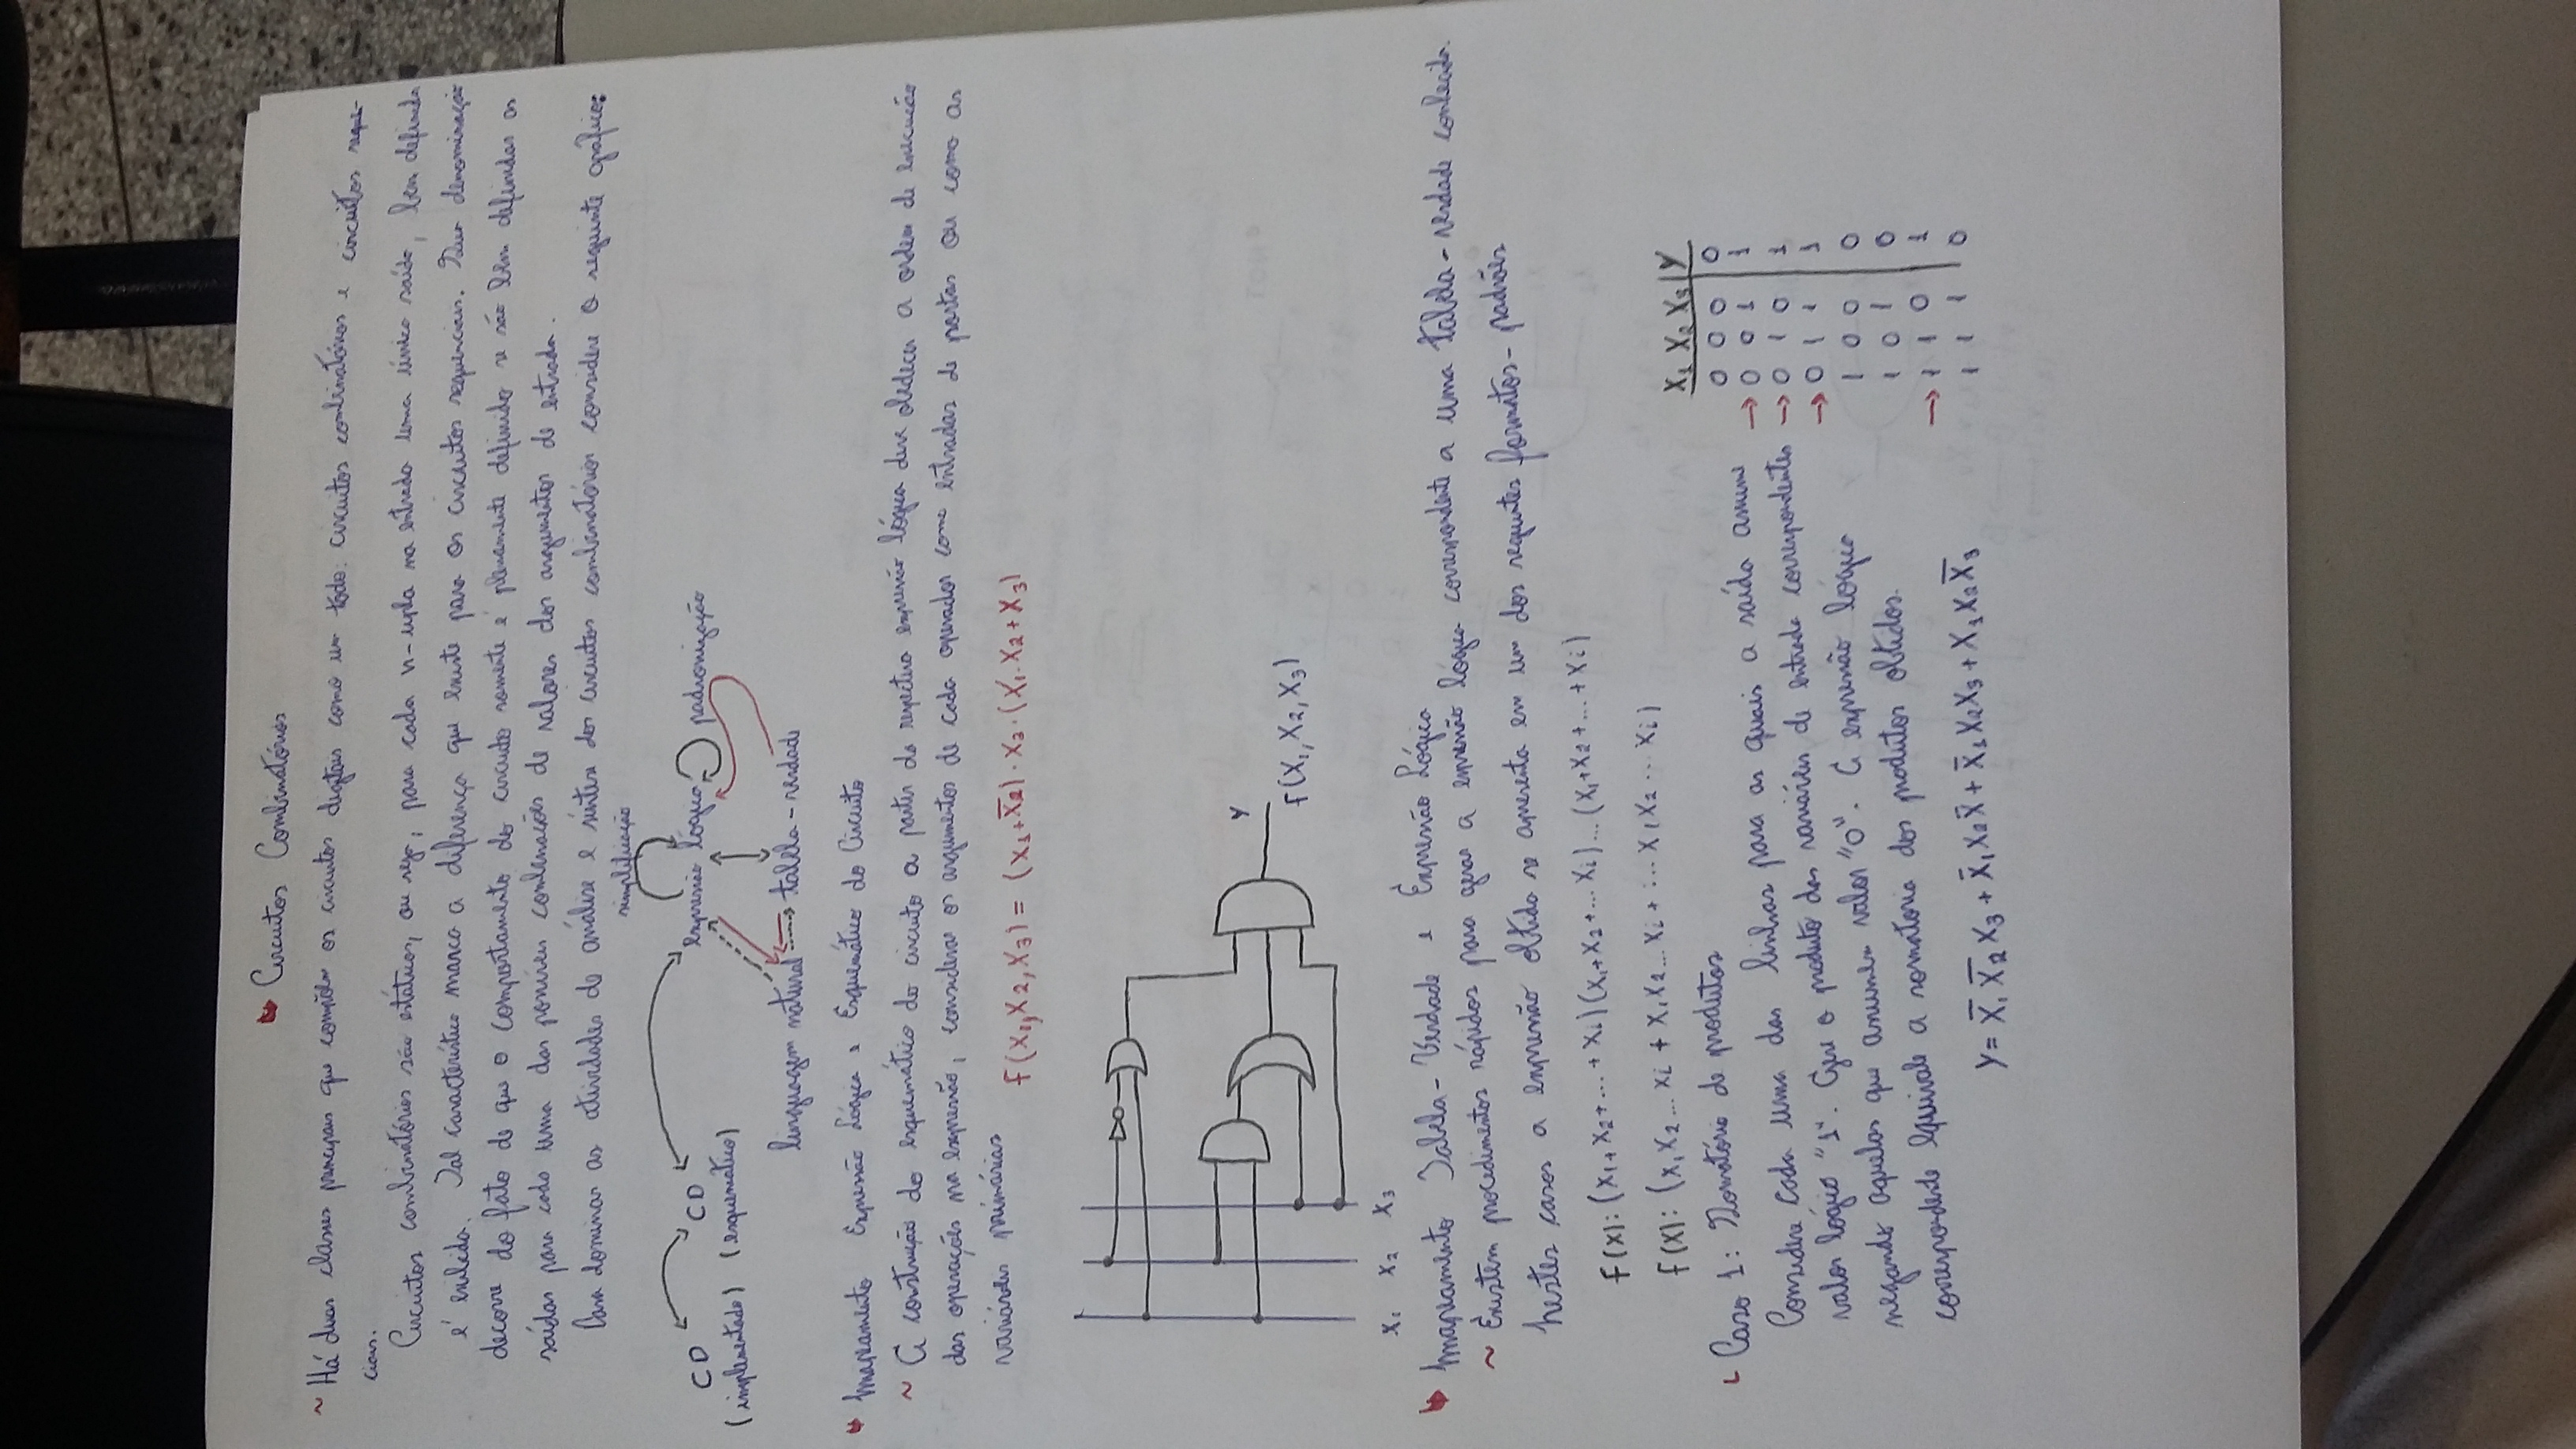 Circuitos Combinatórios
~ Há duas classes principais que compõem os circuitos digitais como um todo: circuitos combinatórios e circuitos sequen-
ciais.
Circuitos combinatórios são estáticos, ou seja, para cada n-upla na entrada uma única saída, bem definida
é exibida. Tal característica marca a diferença que existe para os circuitos sequenciais. Sua denominação
decorre do fato de que o comportamento do circuito somente é plenamente definido se são bem definidas as
saídas para cada uma das possíveis combinações de valores dos argumentos de entrada.
Para dominar as atividades de análise e síntese dos circuitos combinatórios considere o seguinte gráfico:
simplificação
CD CD expressão lógica padronização
(implementado) (esquemático)
linguagem natural tabela-verdade
Mapeamento Expressão Lógica e Esquemático do Circuito
~ A construção do esquemático do circuito a partir da respectiva expressão lógica deve obedecer a ordem de execução
das operações na expressão, considerar os argumentos de cada operador como entradas de portas ou como as
variáveis primárias
f(X₁,X₂,X₃) = (X₁+X̅₂)·X₃·(X₁·X₂+X₃)
Y
f(X₁,X₂,X₃)
X₁ X₂ X₃
Mapeamento Tabela-Verdade e Expressão Lógica
~ Existem procedimentos rápidos para gerar a expressão lógica correspondente a uma tabela-verdade conhecida.
Nestes casos a expressão obtida se apresenta em um dos seguintes formatos-padrões
f(x): (X₁+X₂+...+Xi)(X₁+X₂+...Xi)...(X₁+X₂+...+Xi)
f(x): (X₁X₂...Xi + X₁X₂...Xi + ... X₁X₂...Xi)
Caso 1: Somatório de produtos
Considere cada uma das linhas para as quais a saída assume
valor lógico "1". Gere o produto das variáveis de entrada correspondentes
negando aquelas que assumem valor "0". A expressão lógica
correspondente equivale a somatoria dos produtos obtidos.
Y = X̅₁X̅₂X₃ + X̅₁X₂X̅ + X̅₁X₂X₃ + X₁X₂X̅₃
X₁ X₂ X₃ | Y
0 0 0 | 0
→ 0 0 1 | 1
→ 0 1 0 | 1
→ 0 1 1 | 1
1 0 0 | 0
1 0 1 | 0
→ 1 1 0 | 1
1 1 1 | 0